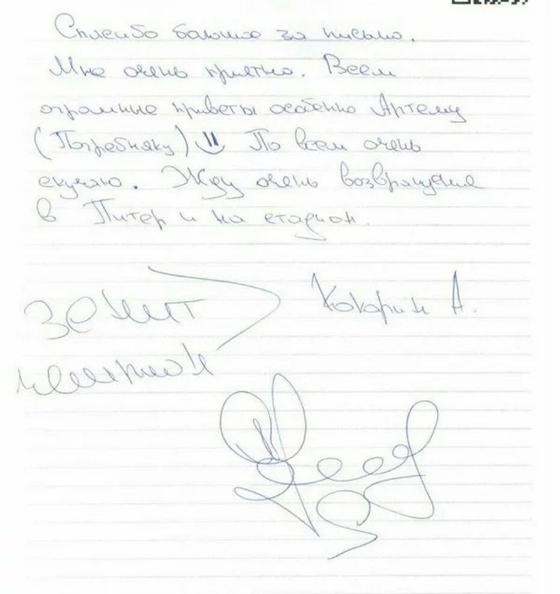 Спасибо большое за письмо.
Мне очень приятно. Всем
огромные приветы особенно Артему
(Погребняку) По всем очень
скучаю. Жду очень возвращения
в Питер и на стадион.
Зенит Кокорин А.
чемпион